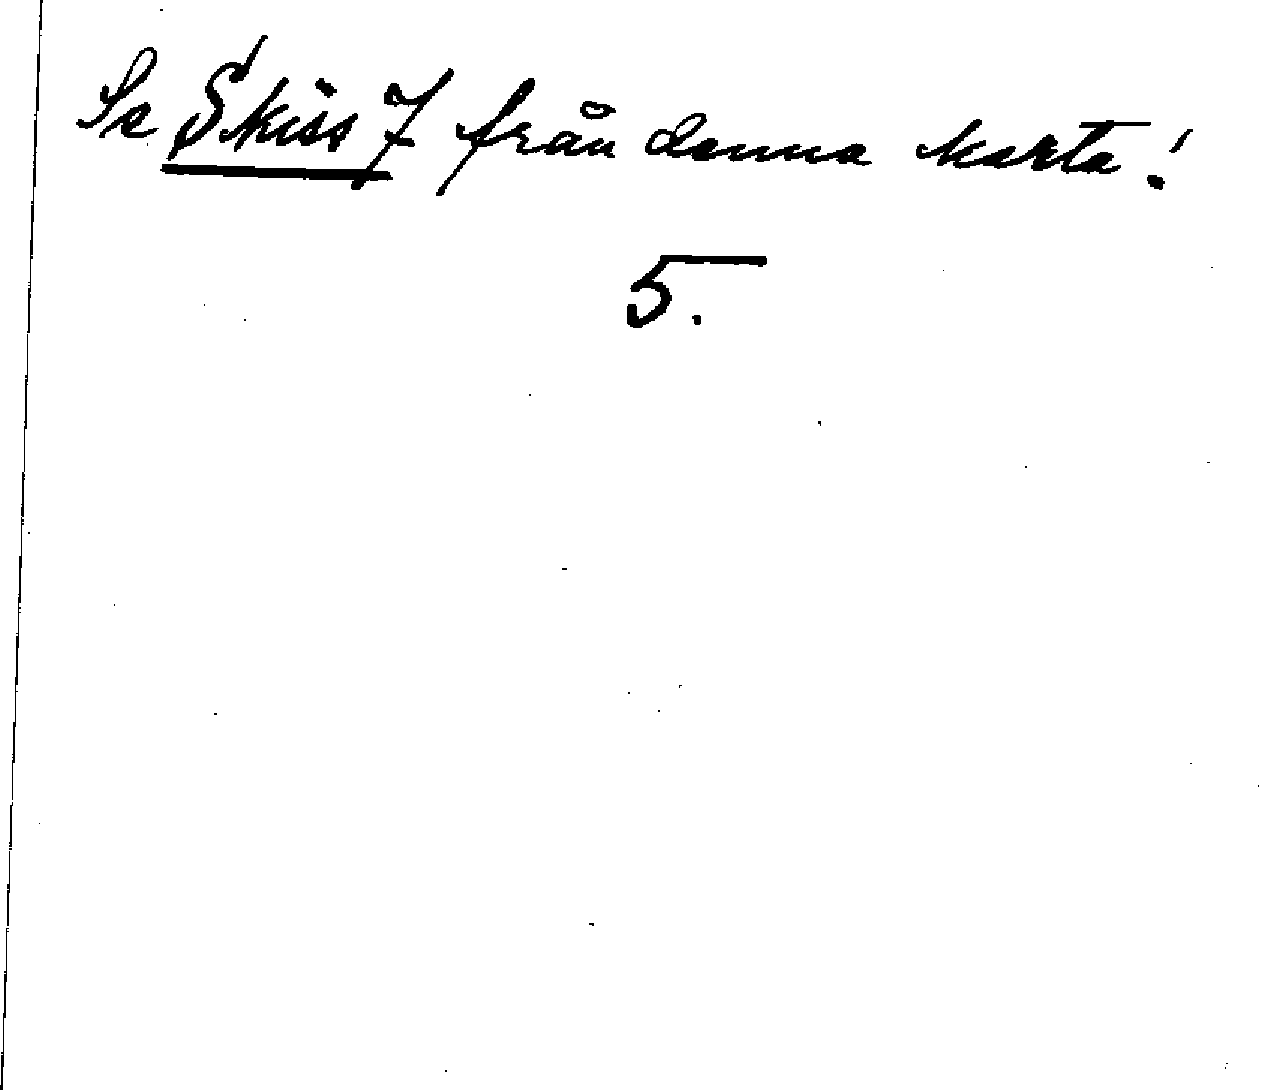 Se Skiss 7 från denna karta!
5.